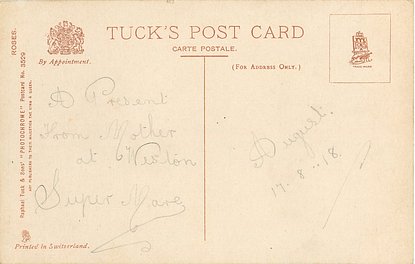 ROSES.
Raphael Tuck & Sons' "PHOTOCHROME" Postcard No. 3529
ART PUBLISHERS TO THEIR MAJESTIES THE KING & QUEEN.
By Appointment.
TUCK'S POST CARD
CARTE POSTALE.
(FOR ADDRESS ONLY.)
TRADE MARK
A Present
From Mother
at Weston
Super Mare
August.
17. 8. 18.
Printed in Switzerland.